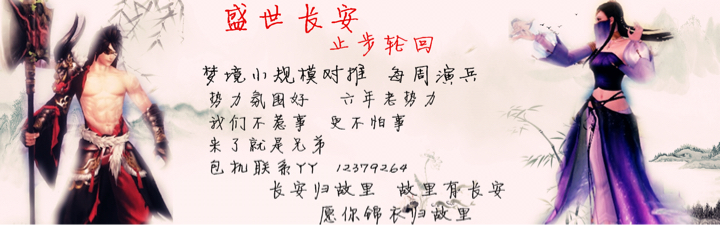 盛世长安
止步轮回
梦境小规模对推 每周演兵
势力氛围好 六年老势力
我们不惹事 更不怕事
来了就是兄弟
包机联系YY 12379264
长安归故里 故里有长安
愿你锦衣归故里